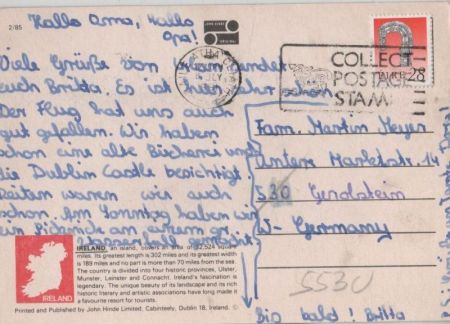 2/85
Hallo Oma, Hallo
Opa!
JOHN HINDE
ORIGINAL
Viele Grüße von sendet
euch Britta. Es ist hier sehr
schön
Der Flug hat uns auch
gut gefallen. Wir haben
schon eine alte Bücherei und
die Dublin Castle besichtigt.
Reiten waren wir auch
schon. Am Sonntag haben wir
COLLECT
POSTAGE
STAMPS
28
Fam. Martin Meyer
Untere Marktstr. 14
530
W-Germany
5530
Bis bald! Britta
IRELAND, an island, covers an area of 32,524 square
miles. Its greatest length is 302 miles and its greatest width
is 189 miles and no part is more than 70 miles from the sea.
The country is divided into four historic provinces, Ulster,
Munster, Leinster and Connacht. Ireland's fascination is
legendary. The unique beauty of its landscape and its rich
historic literary and artistic associations have long made it
a favourite resort for tourists.
IRELAND
Printed and Published by John Hinde Limited, Cabinteely, Dublin 18, Ireland. ©